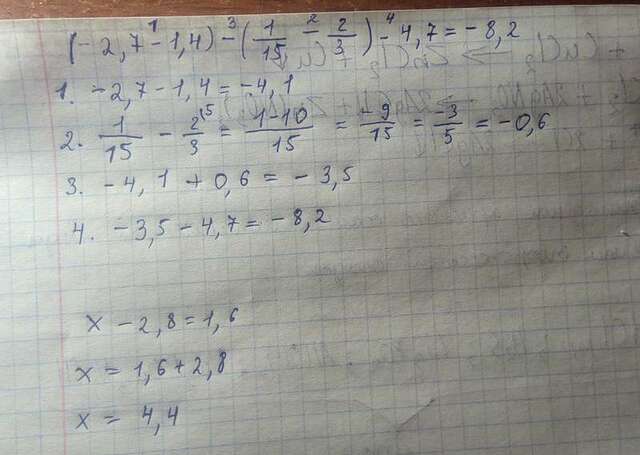 (-2,7 -¹ 1,4) -³ (1/15 -² 2/3) -⁴ 4,7 = -8,2
1. -2,7 - 1,4 = -4,1
2. 1/15 - 2\5/3 = 1-10/15 = -9/15 = -3/5 = -0,6
3. -4,1 + 0,6 = -3,5
4. -3,5 - 4,7 = -8,2
x - 2,8 = 1,6
x = 1,6 + 2,8
x = 4,4